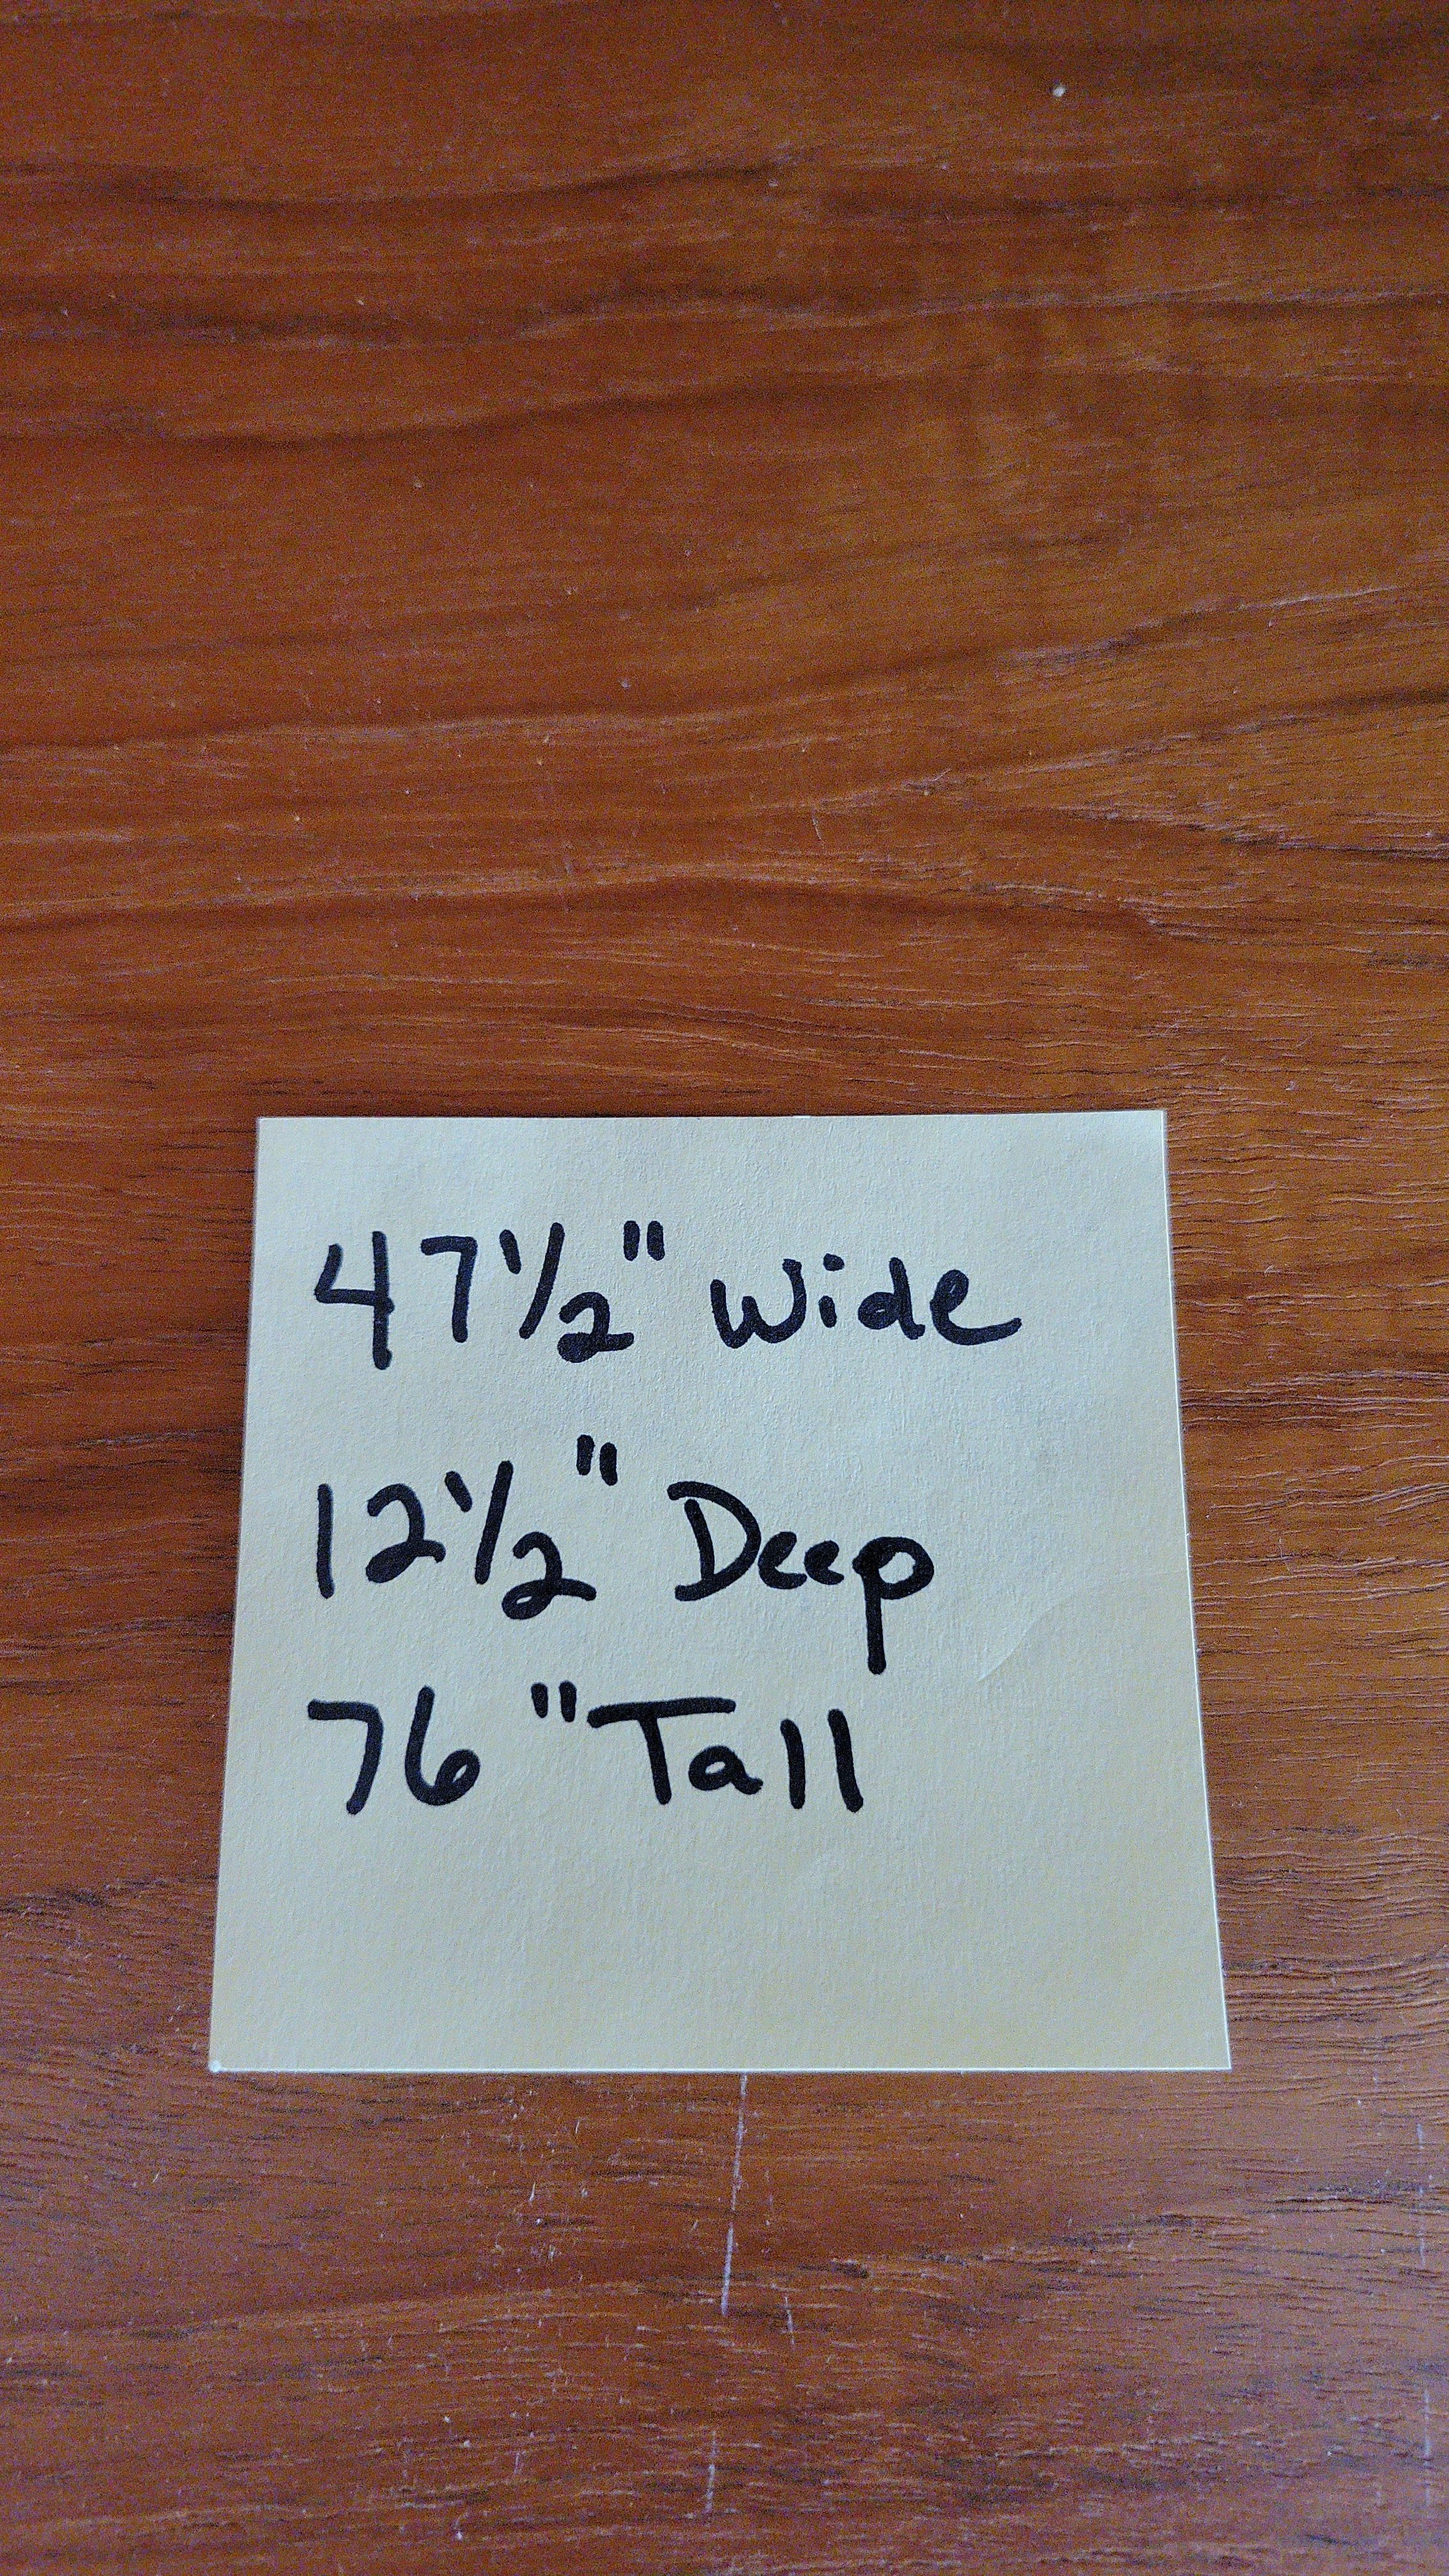 47 1/2" Wide
12 1/2" Deep
76 "Tall